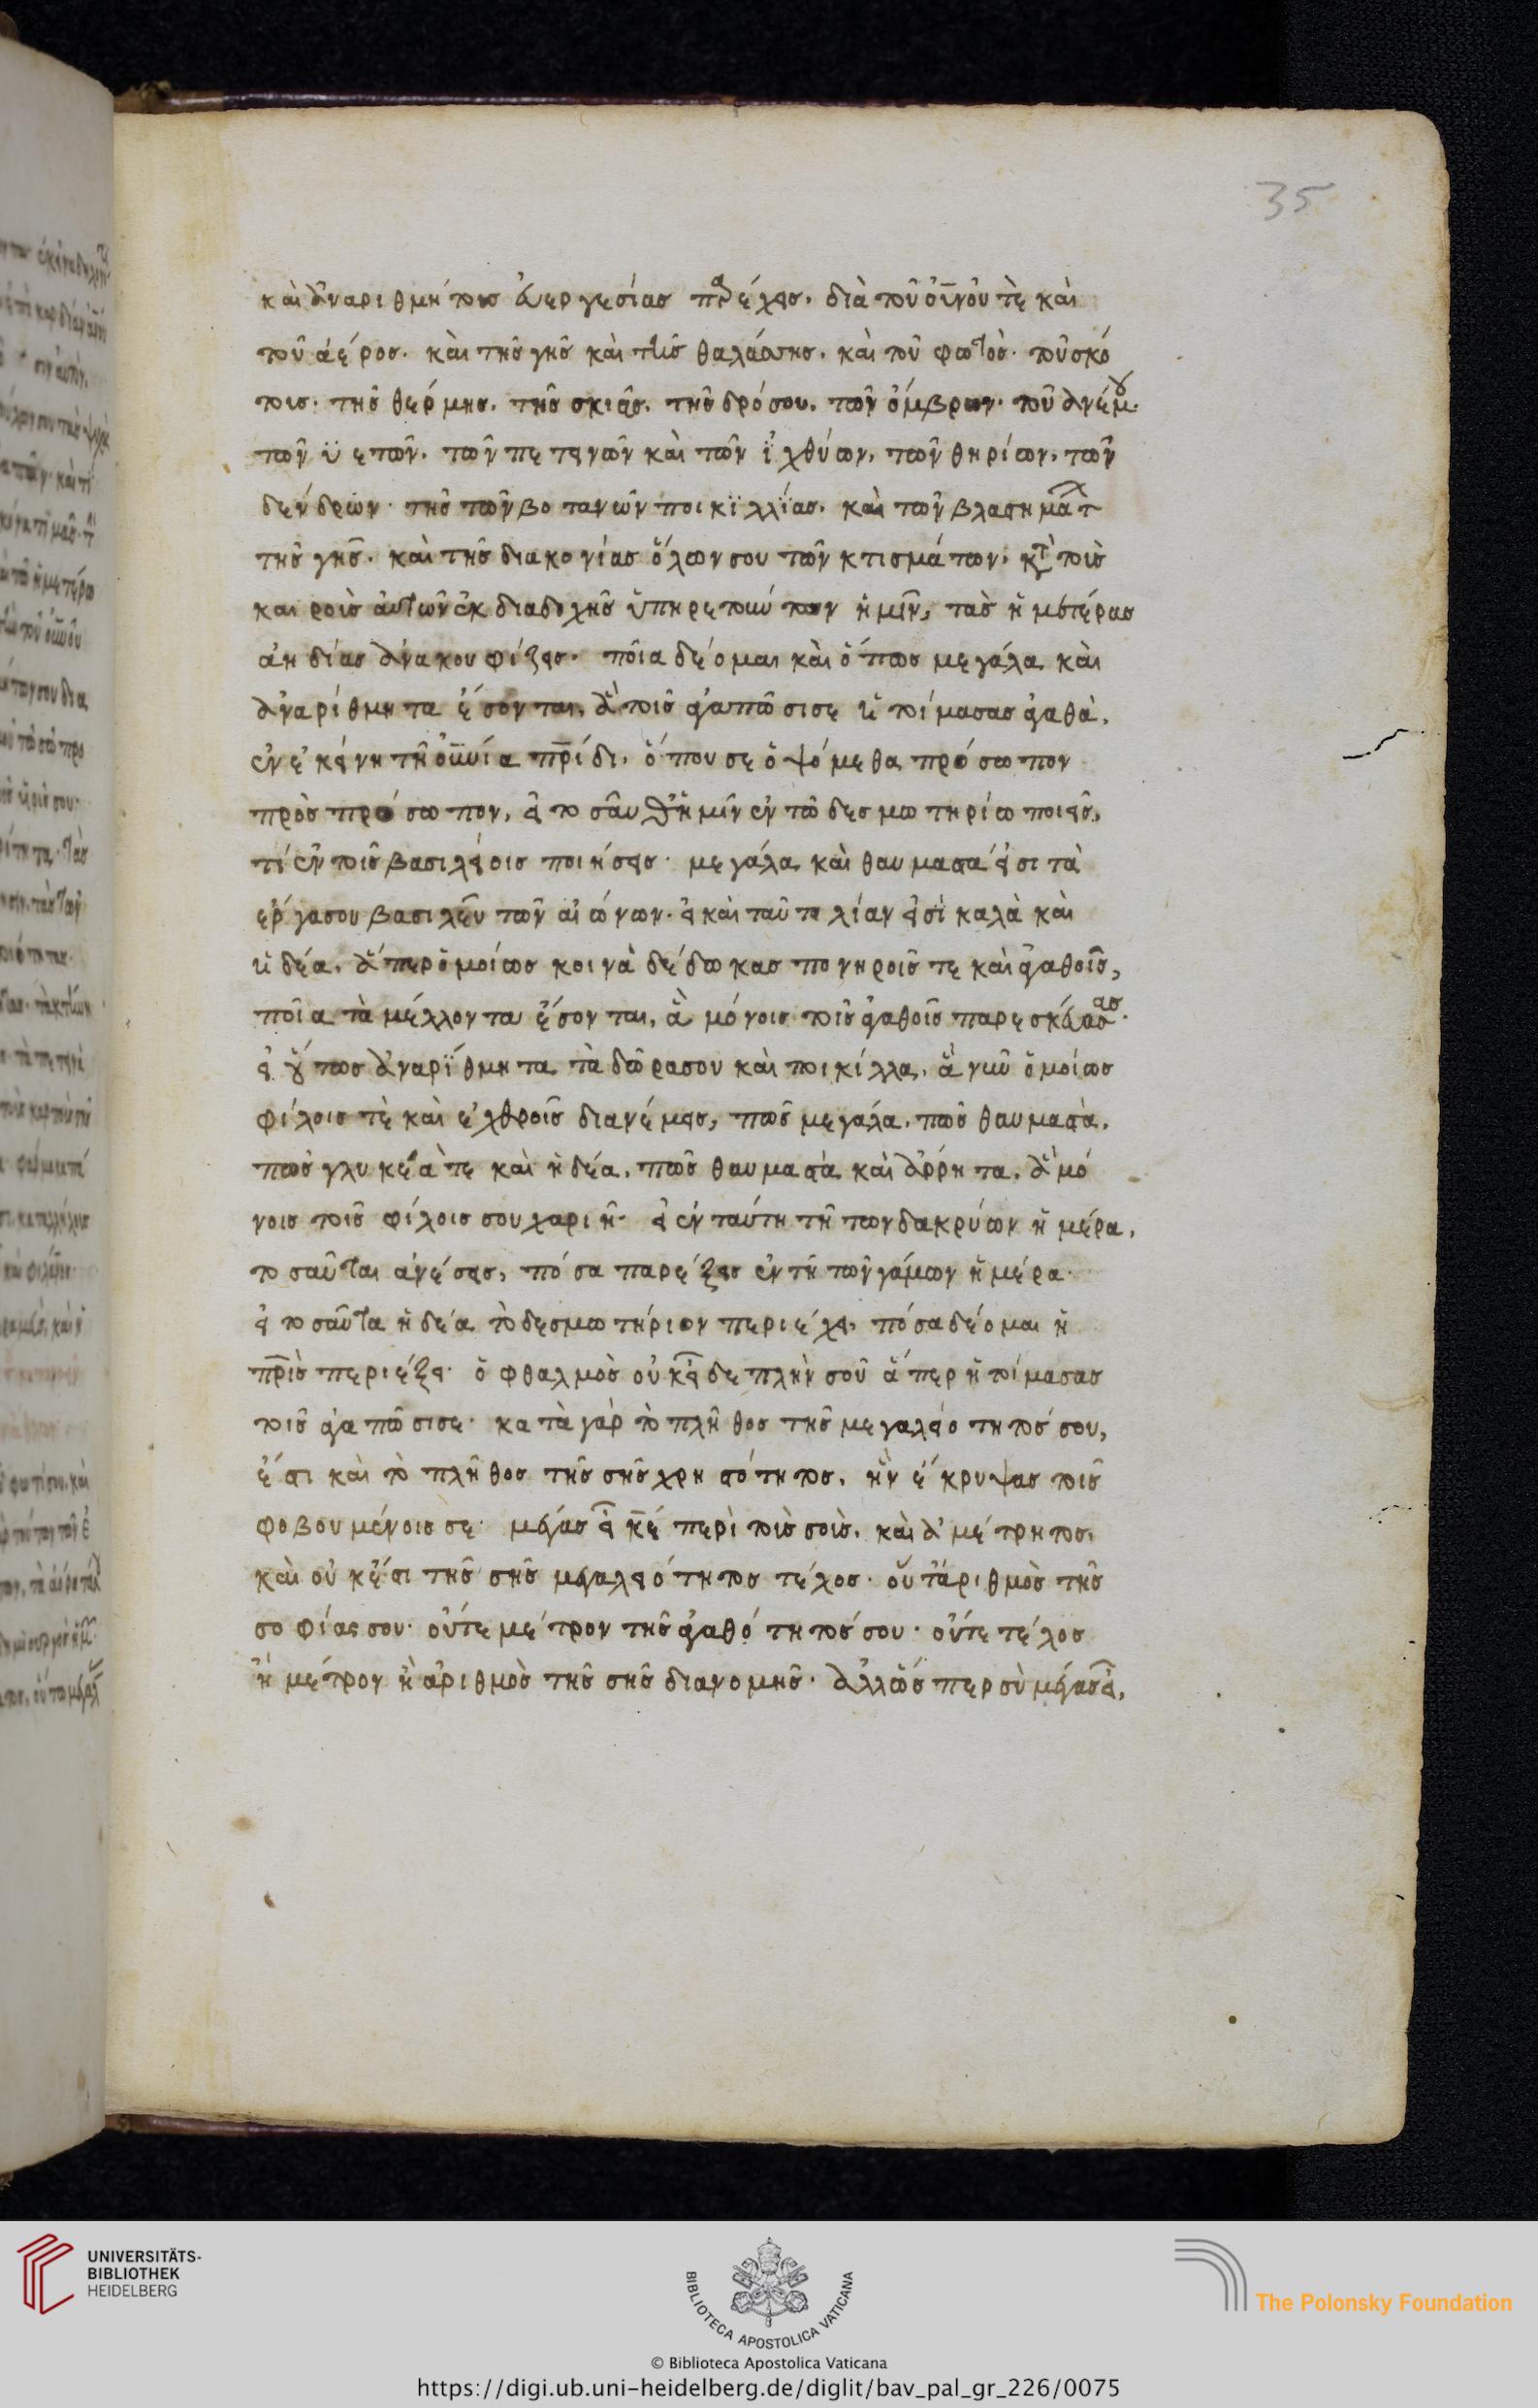 35
καὶ ἀναριθμήτους εὐεργεσίας παρέχεις. διὰ τοῦ οὐνοῦ τὲ καὶ
τοῦ ἀέρος. καὶ τῆς γῆς καὶ τῆς θαλάσσης. καὶ τοῦ φωτὸς. τοῦ σκό
τους. τῆς θέρμης. τῆς σκιᾶς. τῆς δρόσου. τῶν ὄμβρων. τοῦ ἀνέμου.
τῶν ὑετῶν. τῶν πετεινῶν καὶ τῶν ἰχθύων, τῶν θηρίων, τῶν
δένδρων. τῆς τῶν βοτανῶν ποικϊλλΐας. καὶ τῶν βλαστημάτ
τῆς γῆς. καὶ τῆς διακονίας ὅλων σου τῶν κτισμάτων. κατὰ τοὺς
καιροὺς αὐτῶν ἐκ διαδοχῆς ὑπηρετούντων ἡμῖν, τὰς ἡμετέρας
ἀηδίας ἀνακουφίζεις. ποῖα δέομαι καὶ ὅπως μεγάλα καὶ
ἀναρίθμητα ἔσονται, ἃ τοῖς ἀγαπῶσι σε ἡτοίμασας ἀγαθὰ,
ἐν ἐκείνη τῆ οὐνία πρίδι. ὅπου σε ὀψόμεθα πρόσωπον
πρὸς πρόσωπον, εἰ τοσαῦτα ἡμῖν ἐν τῶ δεσμωτηρίω ποιεῖς,
τί ἐν τοῖς βασιλείοις ποιήσεις. μεγάλα καὶ θαυμαστά εἰσι τὰ
ἔργα σου βασιλεῦ τῶν αἰώνων. εἰ καὶ ταῦτα λίαν εἰσὶ καλὰ καὶ
ἡδέα. ἅπερ ὁμοίως κοινὰ δέδωκας πονηροῖς τε καὶ ἀγαθοῖς,
ποῖα τὰ μέλλοντα ἔσονται, ἃ μόνοις τοῖς ἀγαθοῖς παρεσκεύασας.
εἰ οὕτως ἀναρΐθμητα τὰ δῶρα σου καὶ ποικίλλα, ἃ νῦν ὁμοίως
φίλοις τὲ καὶ ἐχθροῖς διανέμεις, πῶς μεγάλα. πῶς θαυμαστὰ.
πῶς γλυκεῖα τὲ καὶ ἡδέα. πῶς θαυμαστὰ καὶ ἄρρητα. ἃ μό
νοις τοῖς φίλοις σου χαριῆ. εἰ ἐν ταύτη τῆ των δακρύων ἡμέρα,
τοσαῦται ἀνέσεις, πόσα παρέξεις ἐν τῆ τῶν γάμων ἡμέρα.
εἰ τοσαῦτα ἡδέα τὸ δεσμωτήριον περιέχει. πόσα δέομαι ἡ
πρὶς περιέξει. ὀφθαλμὸς οὐκ εἶδε πλὴν σοῦ ἅπερ ἡτοίμασας
τοῖς ἀγαπῶσι σε. κατὰ γὰρ τὸ πλῆθος τῆς μεγαλειότητός σου,
ἔστι καὶ τὸ πλῆθος τῆς σῆς χρηστότητος. ἣν ἔκρυψας τοῖς
φοβουμένοις σε. μέγας εἶ κε περὶ τοὺς σοὺς. καὶ ἀμέτρητος.
καὶ οὐκ ἔστι τῆς σῆς μεγαλειότητος τέλος. οὔτ' ἀριθμὸς τῆς
σοφίας σου. οὔτε μέτρον τῆς ἀγαθότητός σου. οὔτε τέλος
ἢ μέτρον ἢ ἀριθμὸς τῆς σῆς διανομῆς. ἀλλ' ὥσπερ σὺ μέγας εἶ,
UNIVERSITÄTS-
BIBLIOTHEK
HEIDELBERG
BIBLIOTECA APOSTOLICA VATICANA
The Polonsky Foundation
© Biblioteca Apostolica Vaticana
https://digi.ub.uni-heidelberg.de/diglit/bav_pal_gr_226/0075